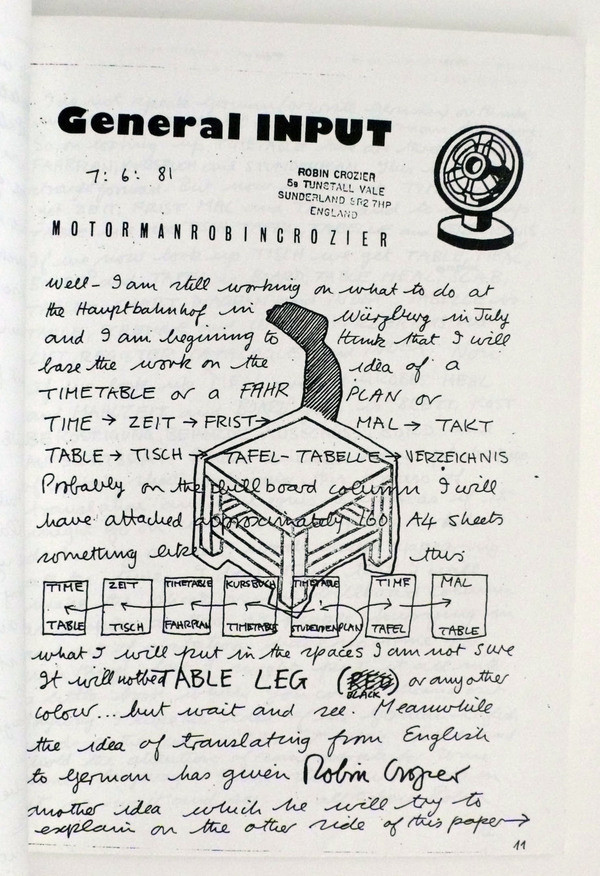 General INPUT
7: 6: 81
ROBIN CROZIER
5B TUNSTALL VALE
SUNDERLAND SR2 7HP
ENGLAND
MOTORMANROBINCROZIER
Well - I am still working on what to do at
the Hauptbahnhof in Würzburg in July
and I am begining to think that I will
base the work on the idea of a
TIMETABLE or a FAHR PLAN or
TIME → ZEIT → FRIST → MAL → TAKT
TABLE → TISCH → TAFEL - TABELLE → VERZEICHNIS
Probably on the billboard column I will
have attached approximately 160 A4 sheets
something like this
TIME ZEIT TIMETABLE KURSBUCH TIMETABLE TIME MAL
TABLE TISCH FAHRPLAN TIMETABLE STUDENDENPLAN TAFEL TABLE
what I will put in the spaces I am not sure
It will not be a TABLE LEG (RED BLACK) or any other
colour... but wait and see. Meanwhile
the idea of translating from English
to German has given Robin Crozier
another idea which he will try to
explain on the other side of this paper →
11